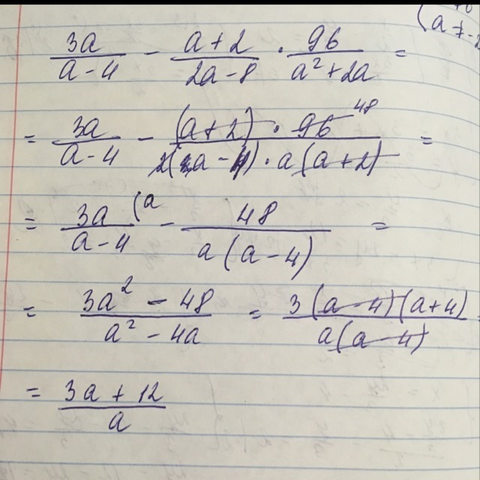 (a+-2
3a/(a-4) - (a+2)/(2a-8) · 96/(a²+2a) =
= 3a/(a-4) - ((a+2) · 96 48)/(2(a-4) · a(a+2)) =
= 3a (a/(a-4) - 48/(a(a-4)) =
= (3a² - 48)/(a² - 4a) = (3(a-4)(a+4))/(a(a-4)) =
= (3a + 12)/a